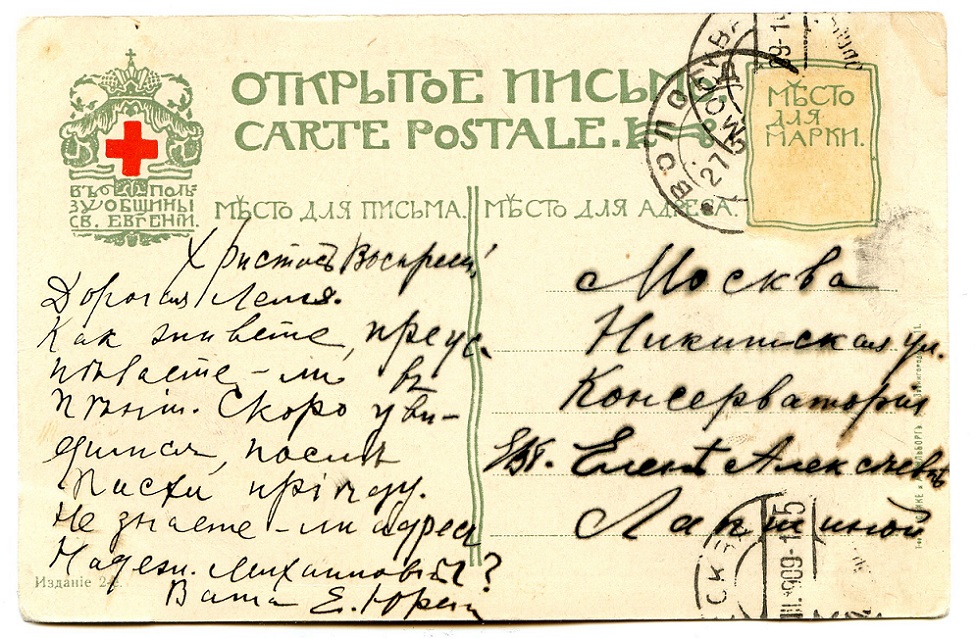 ОТКРЫТОЕ ПИСЬМО
CARTE POSTALE.
ВЪ ПОЛЬ=
ЗУ ОБЩИНЫ
СВ. ЕВГЕНІИ.
МѢСТО ДЛЯ ПИСЬМА.
МѢСТО ДЛЯ АДРЕСА.
МѢСТО
ДЛЯ
МАРКИ.
МОСКВА
ВОЛОГ
27
Христосъ Воскресе!
Дорогая Леля.
Как живете, преус-
пѣваете-ли въ
пѣніи. Скоро уви-
димся, послѣ
Пасхи пріѣду.
Не знаете-ли адреса
Надежд. Михайловны?
Ваша Е. Юрен
Москва
Никитская ул.
Консерватория
Елене Алексѣевнѣ
Лапшиной
Изданіе 2-е.
909-1